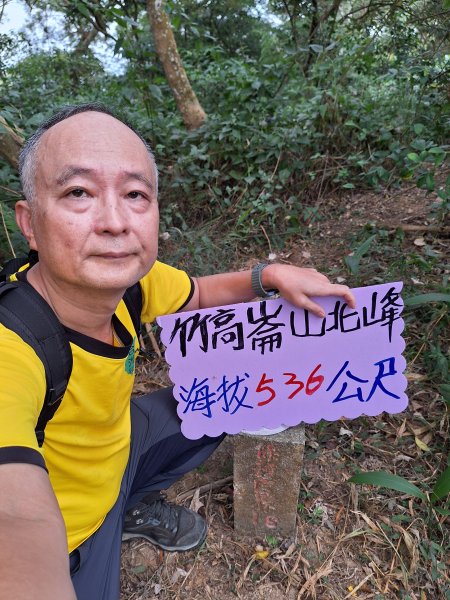 竹高崙山北峰
海拔536公尺